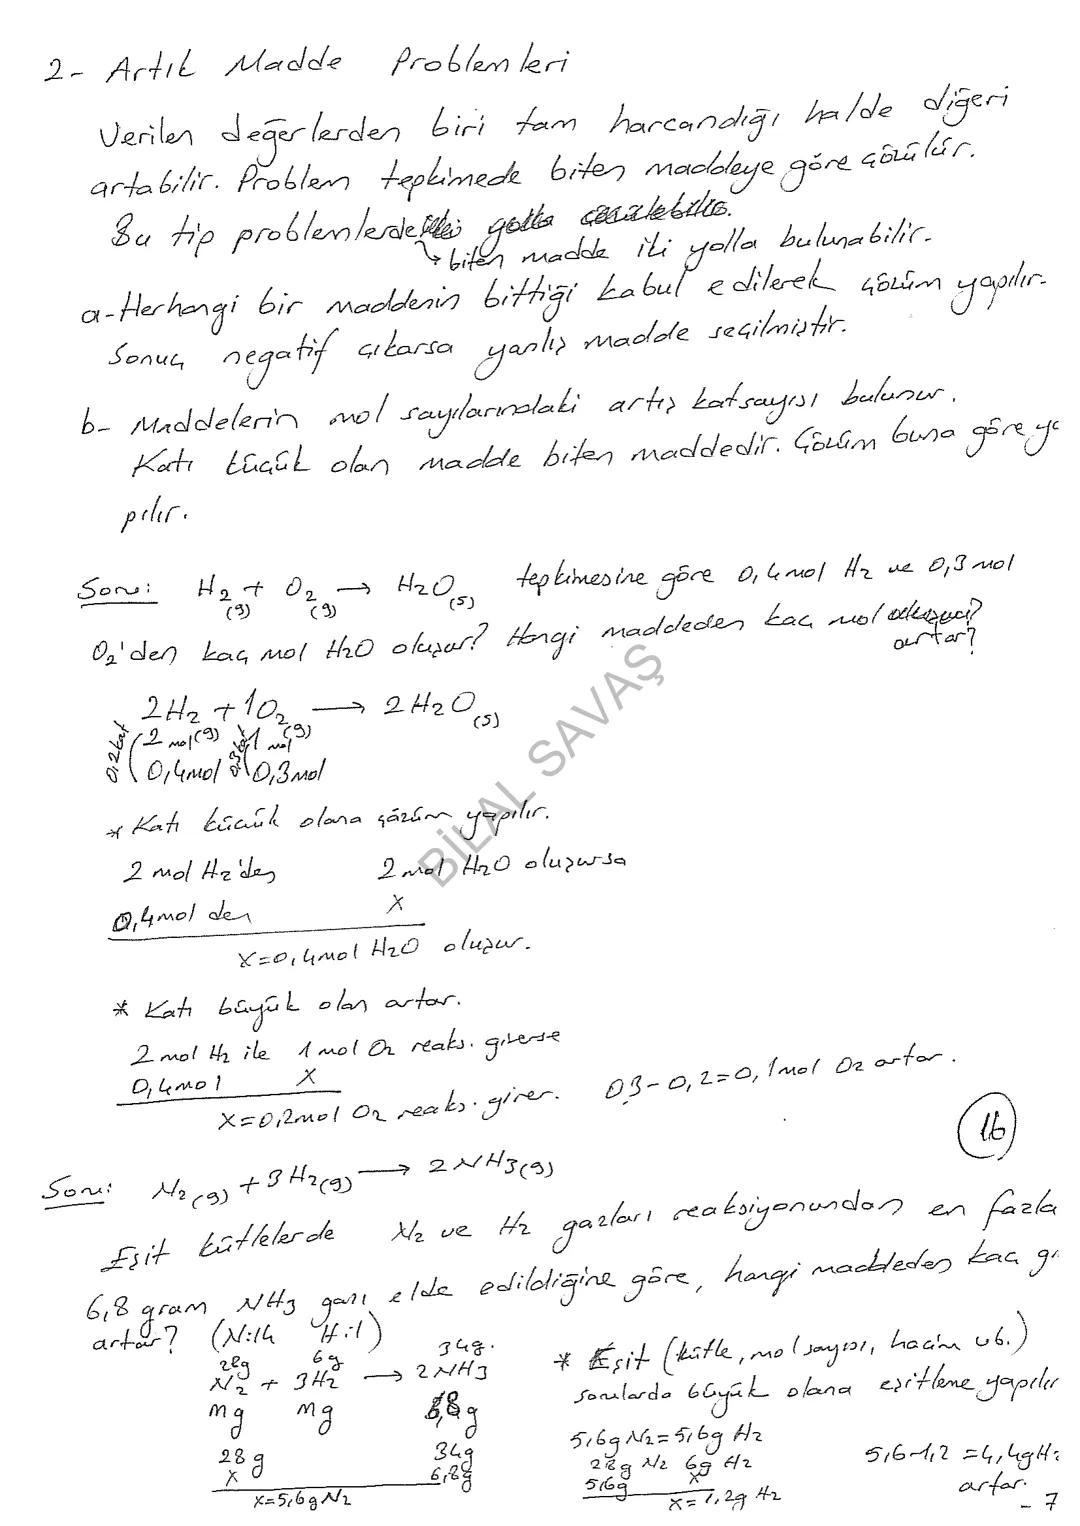 2- Artık Madde Problemleri
Verilen değerlerden biri tam harcandığı halde diğeri
artabilir. Problem tepkimede biten maddeye göre çözülür.
Bu tip problemlerde iki yolla çözülebilir.
↳ biten madde iki yolla bulunabilir.
a- Herhangi bir maddenin bittiği kabul edilerek çözüm yapılır.
Sonuç negatif çıkarsa yanlış madde seçilmiştir.
b- Maddelerin mol sayılarındaki artış katsayısı bulunur.
Katı küçük olan madde biten maddedir. Çözüm buna göre ya
pılır.
Soru: H2(g) + O2(g) → H2O(s) tepkimesine göre 0,4 mol H2 ve 0,3 mol
O2'den kaç mol H2O oluşur? Hangi maddeden kaç mol
artar?
2H2(g) + 1O2(g) → 2H2O(s)
0,2kat 2 mol 0,3kat 1 mol
0,4mol 0,3mol
* Katı küçük olana çözüm yapılır.
2 mol H2'den 2 mol H2O oluşursa
0,4mol den x
x=0,4mol H2O oluşur.
* Katı büyük olan artar.
2 mol H2 ile 1 mol O2 reaks. girerse
0,4mol x
x=0,2mol O2 reaks. girer. 0,3-0,2=0,1mol O2 artar.
16
Soru: N2(g) + 3H2(g) → 2NH3(g)
Eşit kütlelerde N2 ve H2 gazları reaksiyonundan en fazla
6,8 gram NH3 gazı elde edildiğine göre, hangi maddeden kaç gr
artar? (N:14 H:1)
28g 6g 34g.
N2 + 3H2 → 2NH3
mg mg 6,8g
28g 34g
x 6,8g
x=5,6g N2
* Eşit (kütle, mol sayısı, hacim vb.)
sorularda büyük olana eşitleme yapılır
5,6g N2=5,6g H2
28g N2 6g H2
5,6g x
x=1,2g H2
5,6-1,2=4,4g H2
artar.
- 7
BİLAL SAVAŞ